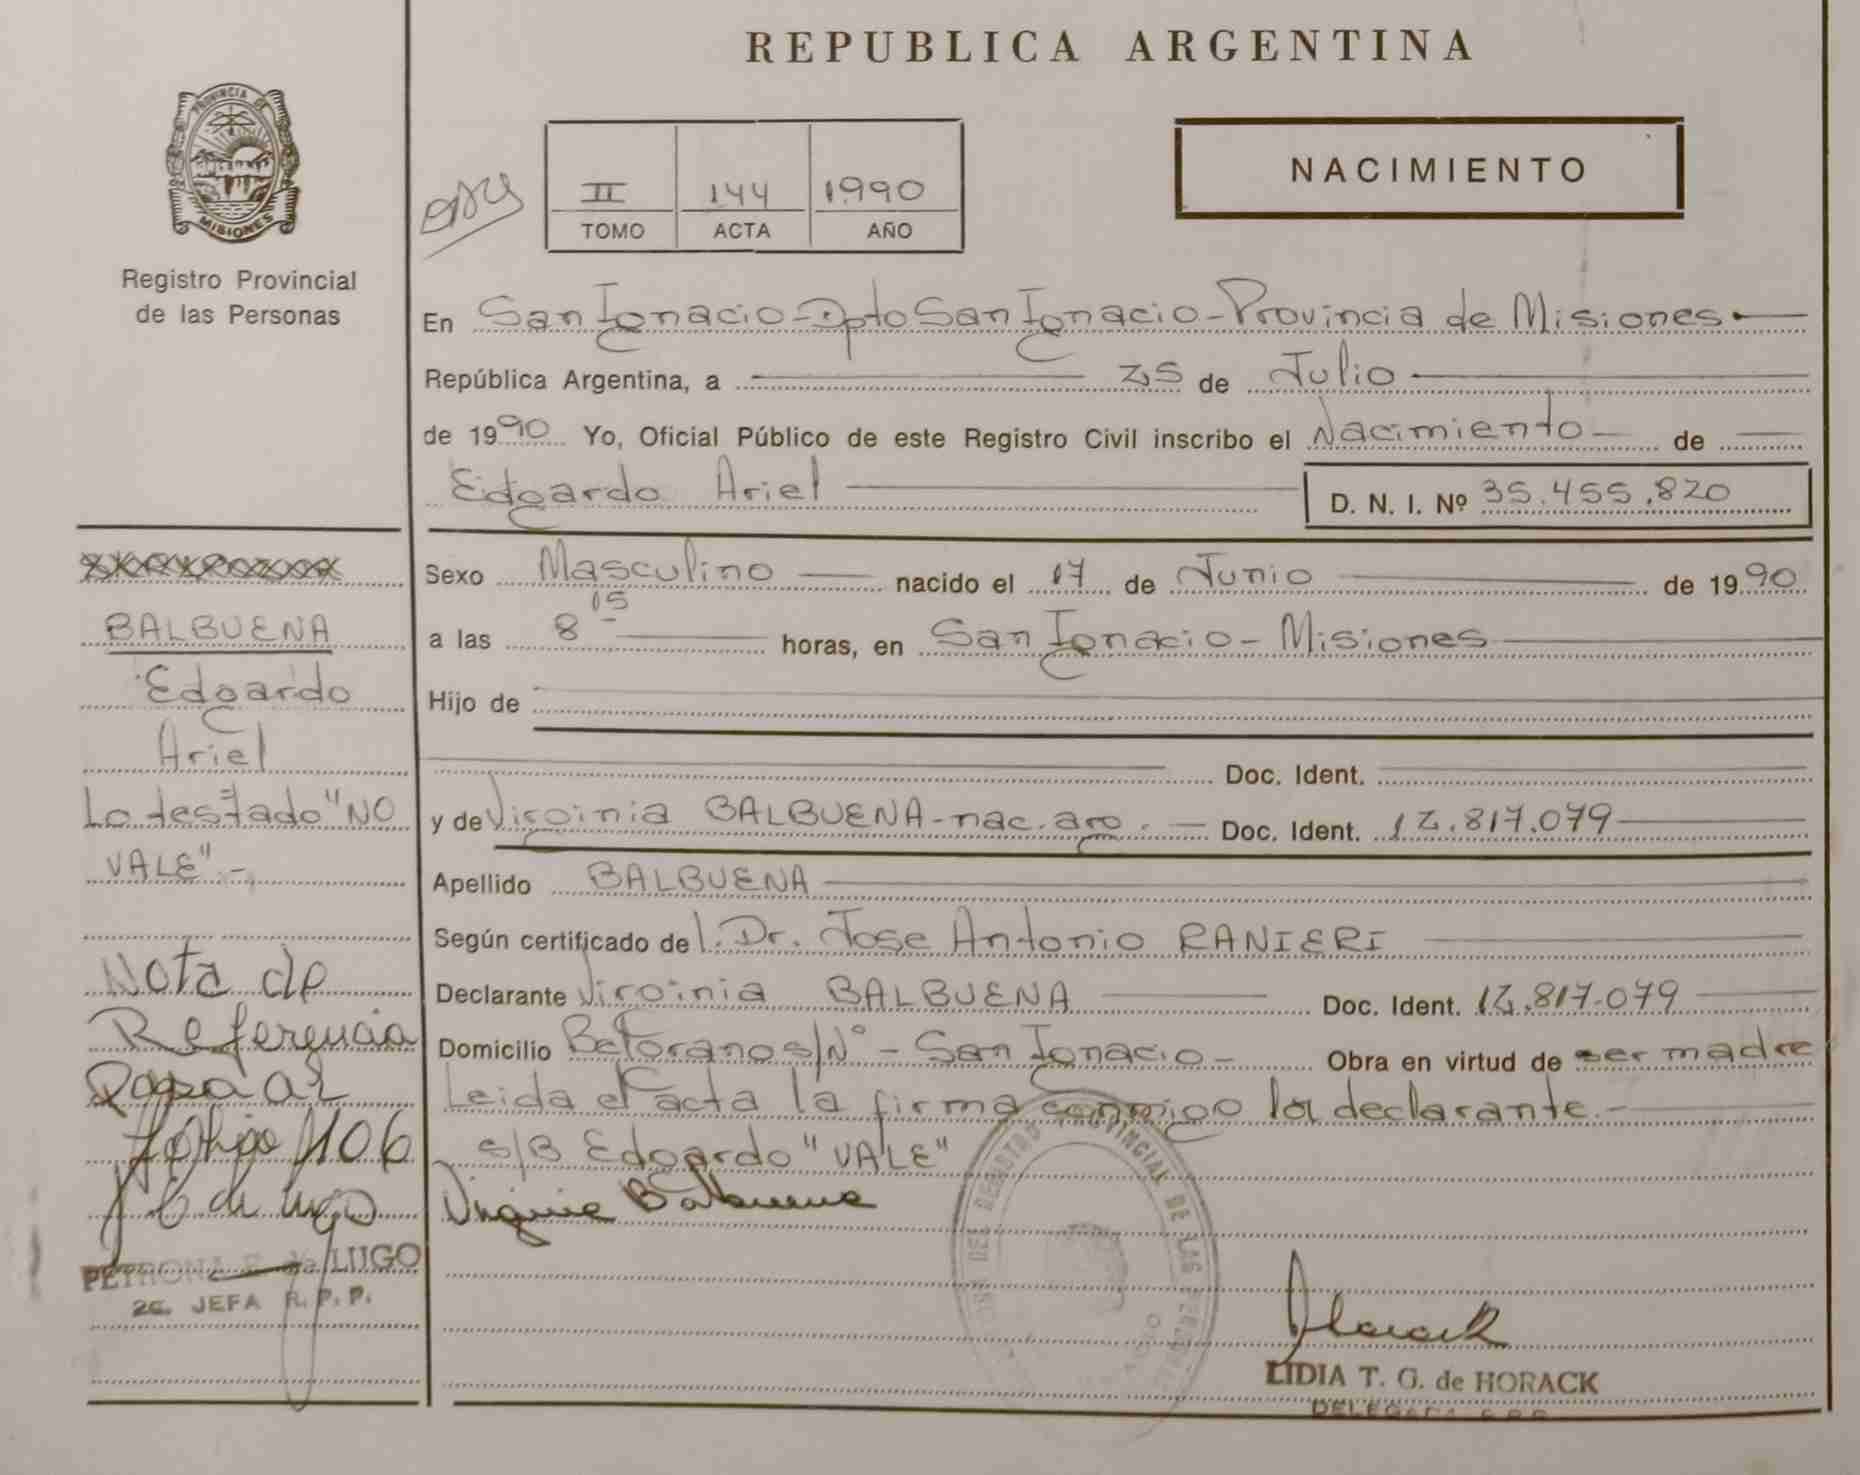 REPUBLICA ARGENTINA
PROVINCIA DE
MISIONES
Registro Provincial
de las Personas
II 144 1990
TOMO ACTA AÑO
NACIMIENTO
En San Ignacio - Dpto San Ignacio - Provincia de Misiones
República Argentina, a 25 de Julio
de 1990 Yo, Oficial Público de este Registro Civil inscribo el Nacimiento de
Edgardo Ariel
D. N. I. Nº 35.455.820
Sexo Masculino nacido el 17 de Junio de 1990
a las 8 15 horas, en San Ignacio - Misiones
Hijo de
Doc. Ident.
y de Virginia BALBUENA - nac. arg. Doc. Ident. 12.817.079
Apellido BALBUENA
Según certificado de l. Dr. Jose Antonio RANIERI
Declarante Virginia BALBUENA Doc. Ident. 12.817.079
Domicilio s/Nº - San Ignacio - Obra en virtud de ser madre
Leida el acta la firma conmigo la declarante.-
s/B Edgardo "VALE"
Virginia Balbuena
LIDIA T. G. de HORACK
DELEGADA
BALBUENA
Edgardo
Ariel
Lo testado "NO
VALE".-
Nota de
Referencia
Pasa al
folio 106
PETRONA de LUGO
2a. JEFA R. P. P.
PROVINCIAL DE LAS